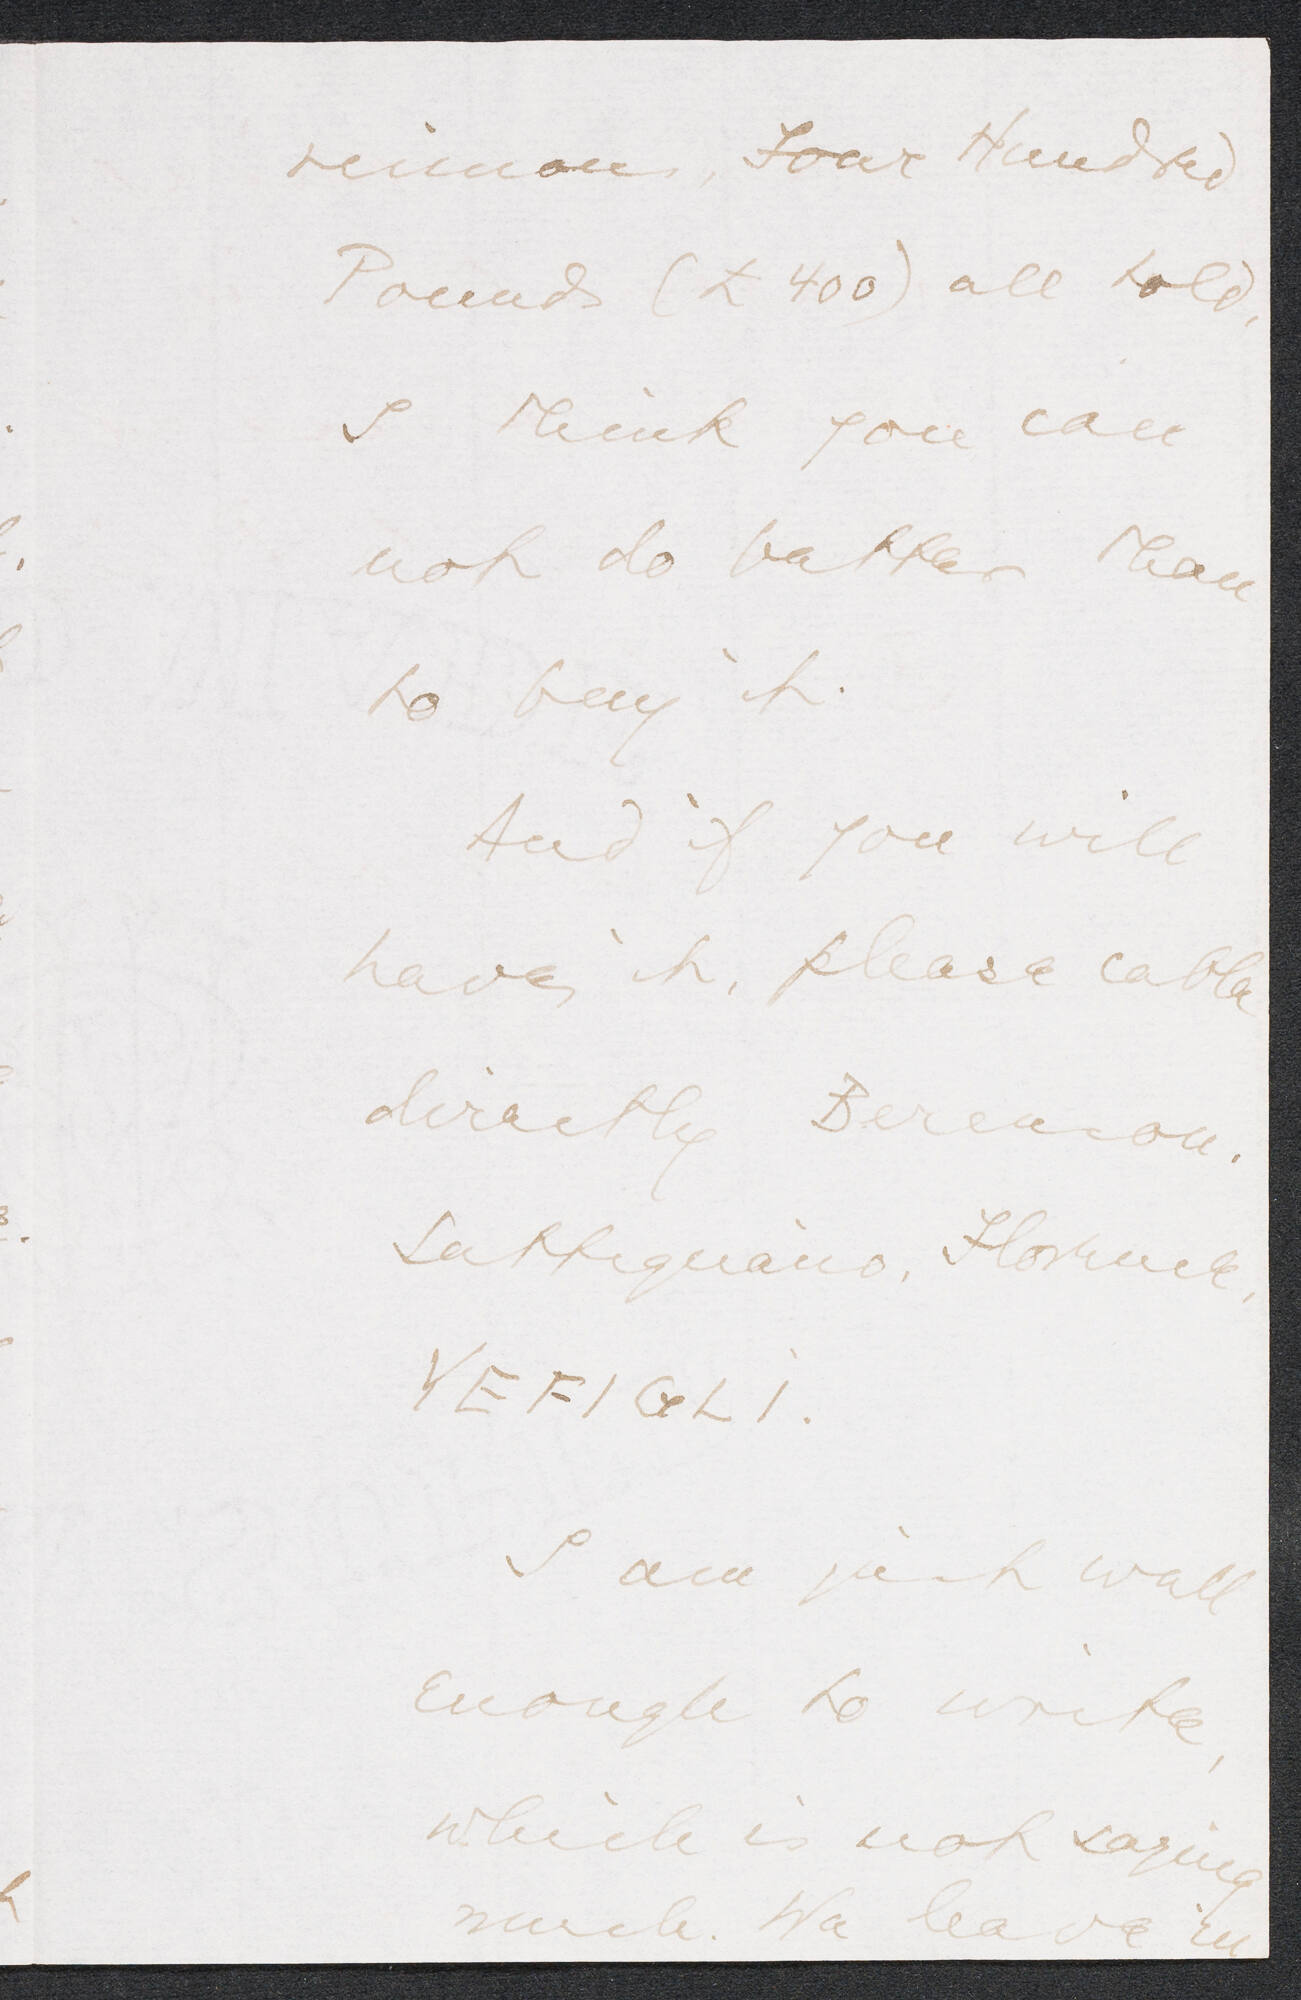 Four Hundred
Pounds (£ 400) all told,
I think you can
not do better than
to buy it.
And if you will
have it, please cable
directly Berenson.
Settignano, Florence,
YEFIGLI.
I am just well
enough to write,
which is not saying
much. We leave in